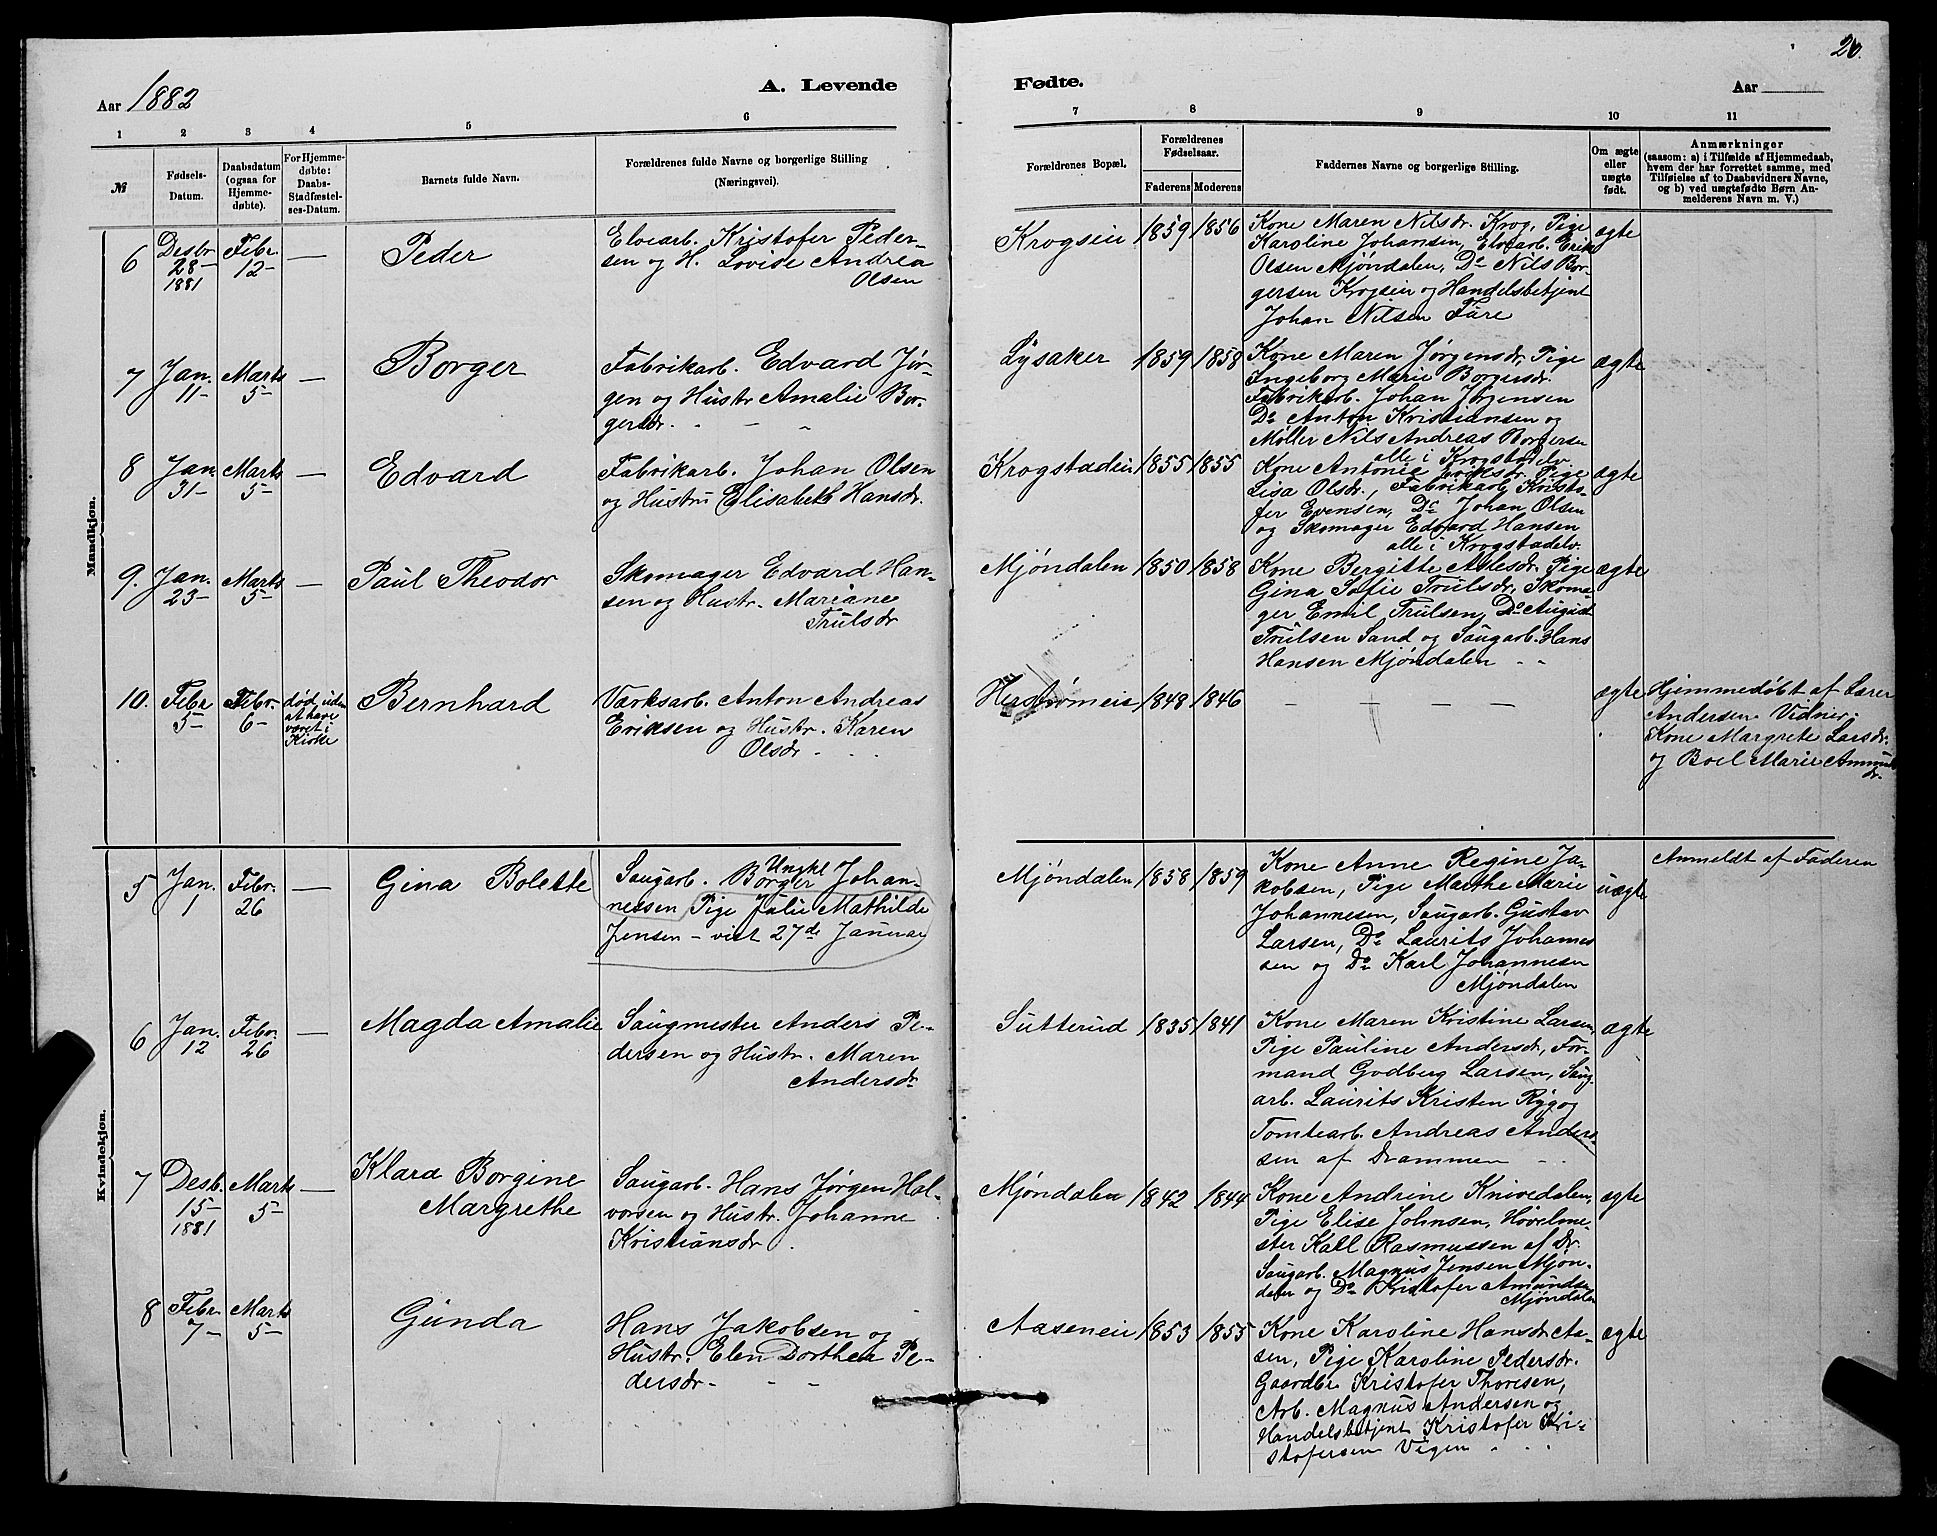 20.
Aar 1882
A. Levende
Fødte.
Aar
1 2 3 4 5 6 7 8 9 10 11
№
Fødsels-
Datum.
Daabsdatum
(ogsaa for
Hjemme-
døbte).
For Hjemme-
døbte:
Daabs-
Stadfæstel-
ses-Datum.
Barnets fulde Navn.
Forældrenes fulde Navne og borgerlige Stilling
(Næringsvei).
Forældrenes Bopæl.
Forældrenes
Fødselsaar.
Faderens Moderens
Faddernes Navne og borgerlige Stilling.
Om ægte
eller
uægte
født.
Anmærkninger
(saasom: a) i Tilfælde af Hjemmedaab,
hvem der har forrettet samme, med
Tilføielse af to Daabsvidners Navne,
og b) ved uægtefødte Børn An-
melderens Navn m. V.)
Mandkjøn.
6
Desbr
28-
1881
Febr.
12-
—
Peder
Elvearb. Kristofer Peder-
sen og H. Lovise Andrea
Olsen
Krogseie
1859
1856
Kone Maren Nilsdr. Krog, Pige
Karoline Johansen, Elvearb. Erik
Olsen Mjøndalen, Do Nils Bor-
gersen Krogseie og Handelsbetjent
Johan Nilsen Fure
ægte
7
Jan.
11-
Marts
5-
—
Borger
Fabrikarb. Edvard Jør-
gen og Hustr Amalie Bor-
gersdr. - - -
Lysaker
1859
1858
Kone Maren Jørgensdr, Pige
Ingeborg Marie Borgersdr.
Fabrikarb. Johan Jørgensen
Do Anton Kristiansen og
Møller Nils Andreas Borgersen
alle i Krogstadelv.
ægte
8
Jan.
31-
Marts
5-
—
Edvard
Fabrikarb. Johan Olsen
og Hustru Elisabeth Hansdr.
Krogstadeie
1855
1855
Kone Antonie Eriksdr, Pige
Lisa Olsdr., Fabrikarb. Kristo-
fer Evensen, Do Johan Olsen
og Skomager Edvard Hansen
alle i Krogstadelv.
ægte
9.
Jan.
23-
Marts
5-
—
Paul Theodor
Skomager Edvard Han-
sen og Hustr. Mariane
Trulsdr
Mjøndalen
1850
1858
Kone Bergitte Aslesdr. Pige
Gina Sofie Trulsdr, Skoma-
ger Emil Trulsen, Do August
Trulsen Sand og Saugarb. Hans
Hansen Mjøndalen - -
ægte
10.
Febr
5-
Febr.
6-
død, uden
at have
været i
Kirke
Bernhard
Værksarb. Anton Andreas
Eriksen og Hustr. Karen
Olsdr - -
1848
1846
— — — — —
ægte
Hjemmedøbt af Lærer
Andersen. Vidner:
Kone Margrete Larsdr.
og Boel Marie Amunds
dr.
Kvindekjøn.
5
Jan.
1
Febr.
26
—
Gina Bolette
Ungkl
Saugarb. Borger Johan-
nessen Pige Julie Mathilde
Jensen – viet 27de Januar
Mjøndalen
1858
1859
Kone Anne Regine Ja-
kobsen, Pige Marthe Marie
Johannesen, Saugarb. Gustav
Larsen, Do Laurits Johannes
sen og Do Karl Johannesen
Mjøndalen
uægte
Anmeldt af Faderen
6
Jan.
12
Febr.
26
—
Magda Amalie
Saugmester Anders Pe-
dersen og Hustr. Maren
Andersdr
Sutterud
1835
1841
Kone Maren Kristine Larsen,
Pige Pauline Andersdr, For-
mand Godberg Larsen, Saug-
arb. Laurits Kristen Ryg og
Tomtearb. Andreas Ander-
sen af Drammen - -
ægte
7
Desb.
15-
1881
Marts
5-
—
Klara Borgine
Margrethe
Saugarb. Hans Jørgen Hal-
vorsen og Hustr. Johanne
Kristiansdr.
Mjøndalen
1842
1844
Kone Andrine Knivedalen,
Pige Elise Johnsen, Høvelme-
ster Karl Rasmussen af Dr.
Saugarb. Magnus Jensen Mjøn-
dalen og Do Kristofer Amundsen
Mjøndalen
ægte
8
Febr.
7-
Marts
5-
Gunda
Hans Jakobsen og
Hustr. Elen Dorthea Pe-
dersdr- - -
Aaseneie
1853
1855
Kone Karoline Hansdr Aa-
sen, Pige Karoline Pedersdr.
Gaardbr. Kristofer Thoresen,
Arb. Magnus Andersen og
Handelsbetjent Kristofer Kri-
stofersen Vigen - - -
ægte